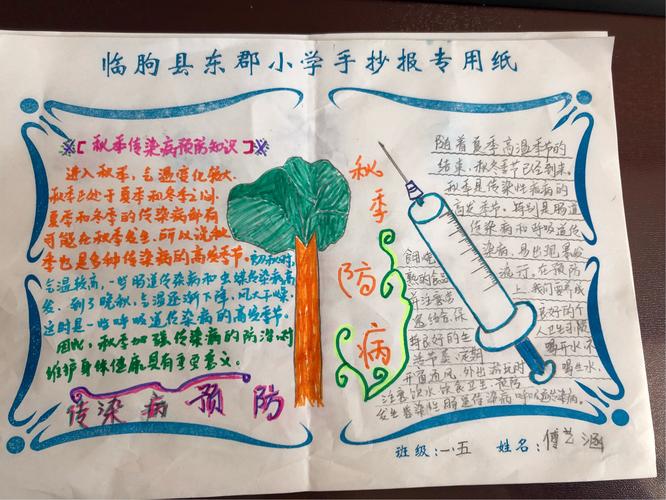 临朐县东郡小学手抄报专用纸
【秋季传染病预防知识】
进入秋季，气温变化较大，
秋季已处于夏季和冬季之间
夏季和冬季的传染病都有
可能在秋季发生，所以说秋
季也是多种传染病的高发季节。初秋时，
气温较高，一些肠道传染病和虫媒传染病高
发，到了晚秋，气温逐渐下降，风大干燥，
这时是一些呼吸道传染病的高发季节。
因此，秋季加强传染病的防治，对
维护身体健康具有重要意义。
传染病预防
秋季
防病
随着夏季高温季节的
结束，秋冬季节已经到来，
秋季是传染性疾病的
高发季节，特别是肠道
传染病和呼吸道传
染病，易出现暴发
流行，在预防
上，我们要养成
良好的个
人卫生习惯
喝开水不
喝生水，
食用
熟的食品
并注意
息结合，保
持良好的生
活节奏，定期
开通通风，外出游玩时
注意饮水饮食卫生，预防
发生感染性肠道传染病和传染病。
班级：一、五 姓名：傅艺涵